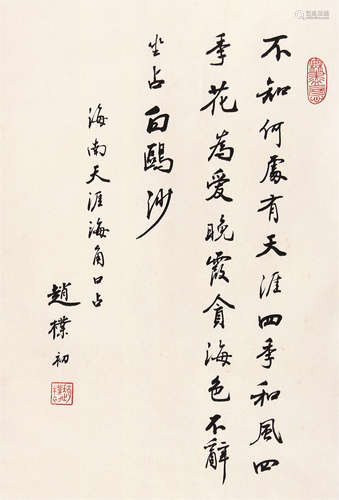 不知何處有天涯四季和風四
季花為愛晚霞貪海色不辭
坐占白鷗沙
海南天涯海角口占
趙樸初